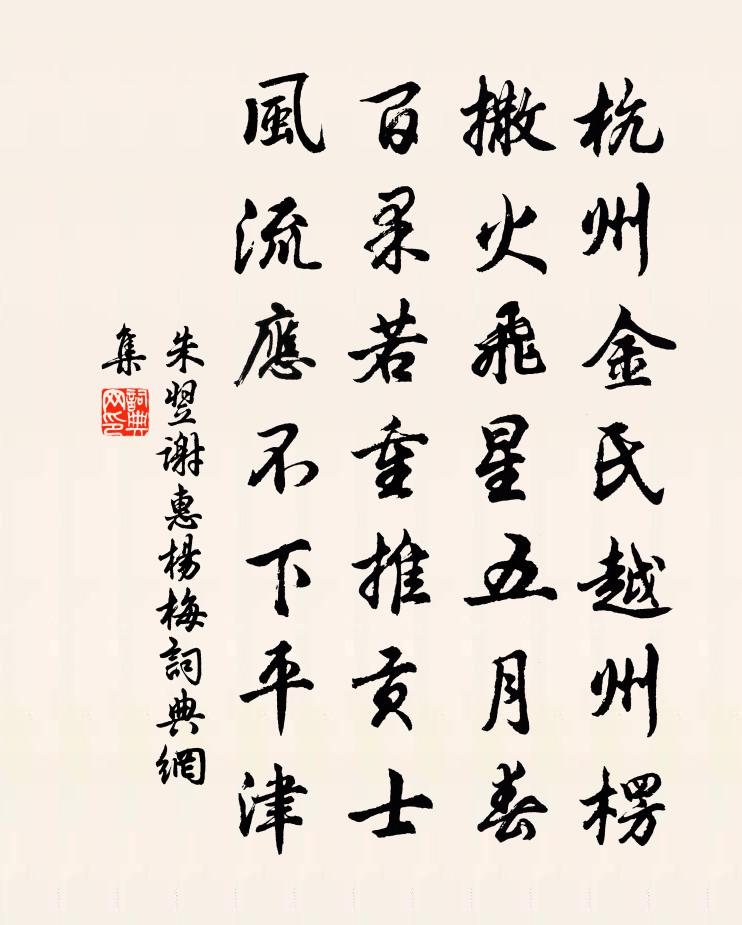 杭州金氏越州楞
撒火飛星五月春
百果若重推贡士
風流應不下平津
朱翌謝惠楊梅詞典網
集
詞典
网印